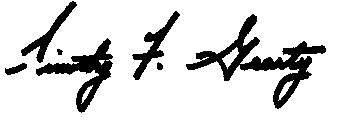 Timothy F. Gearty